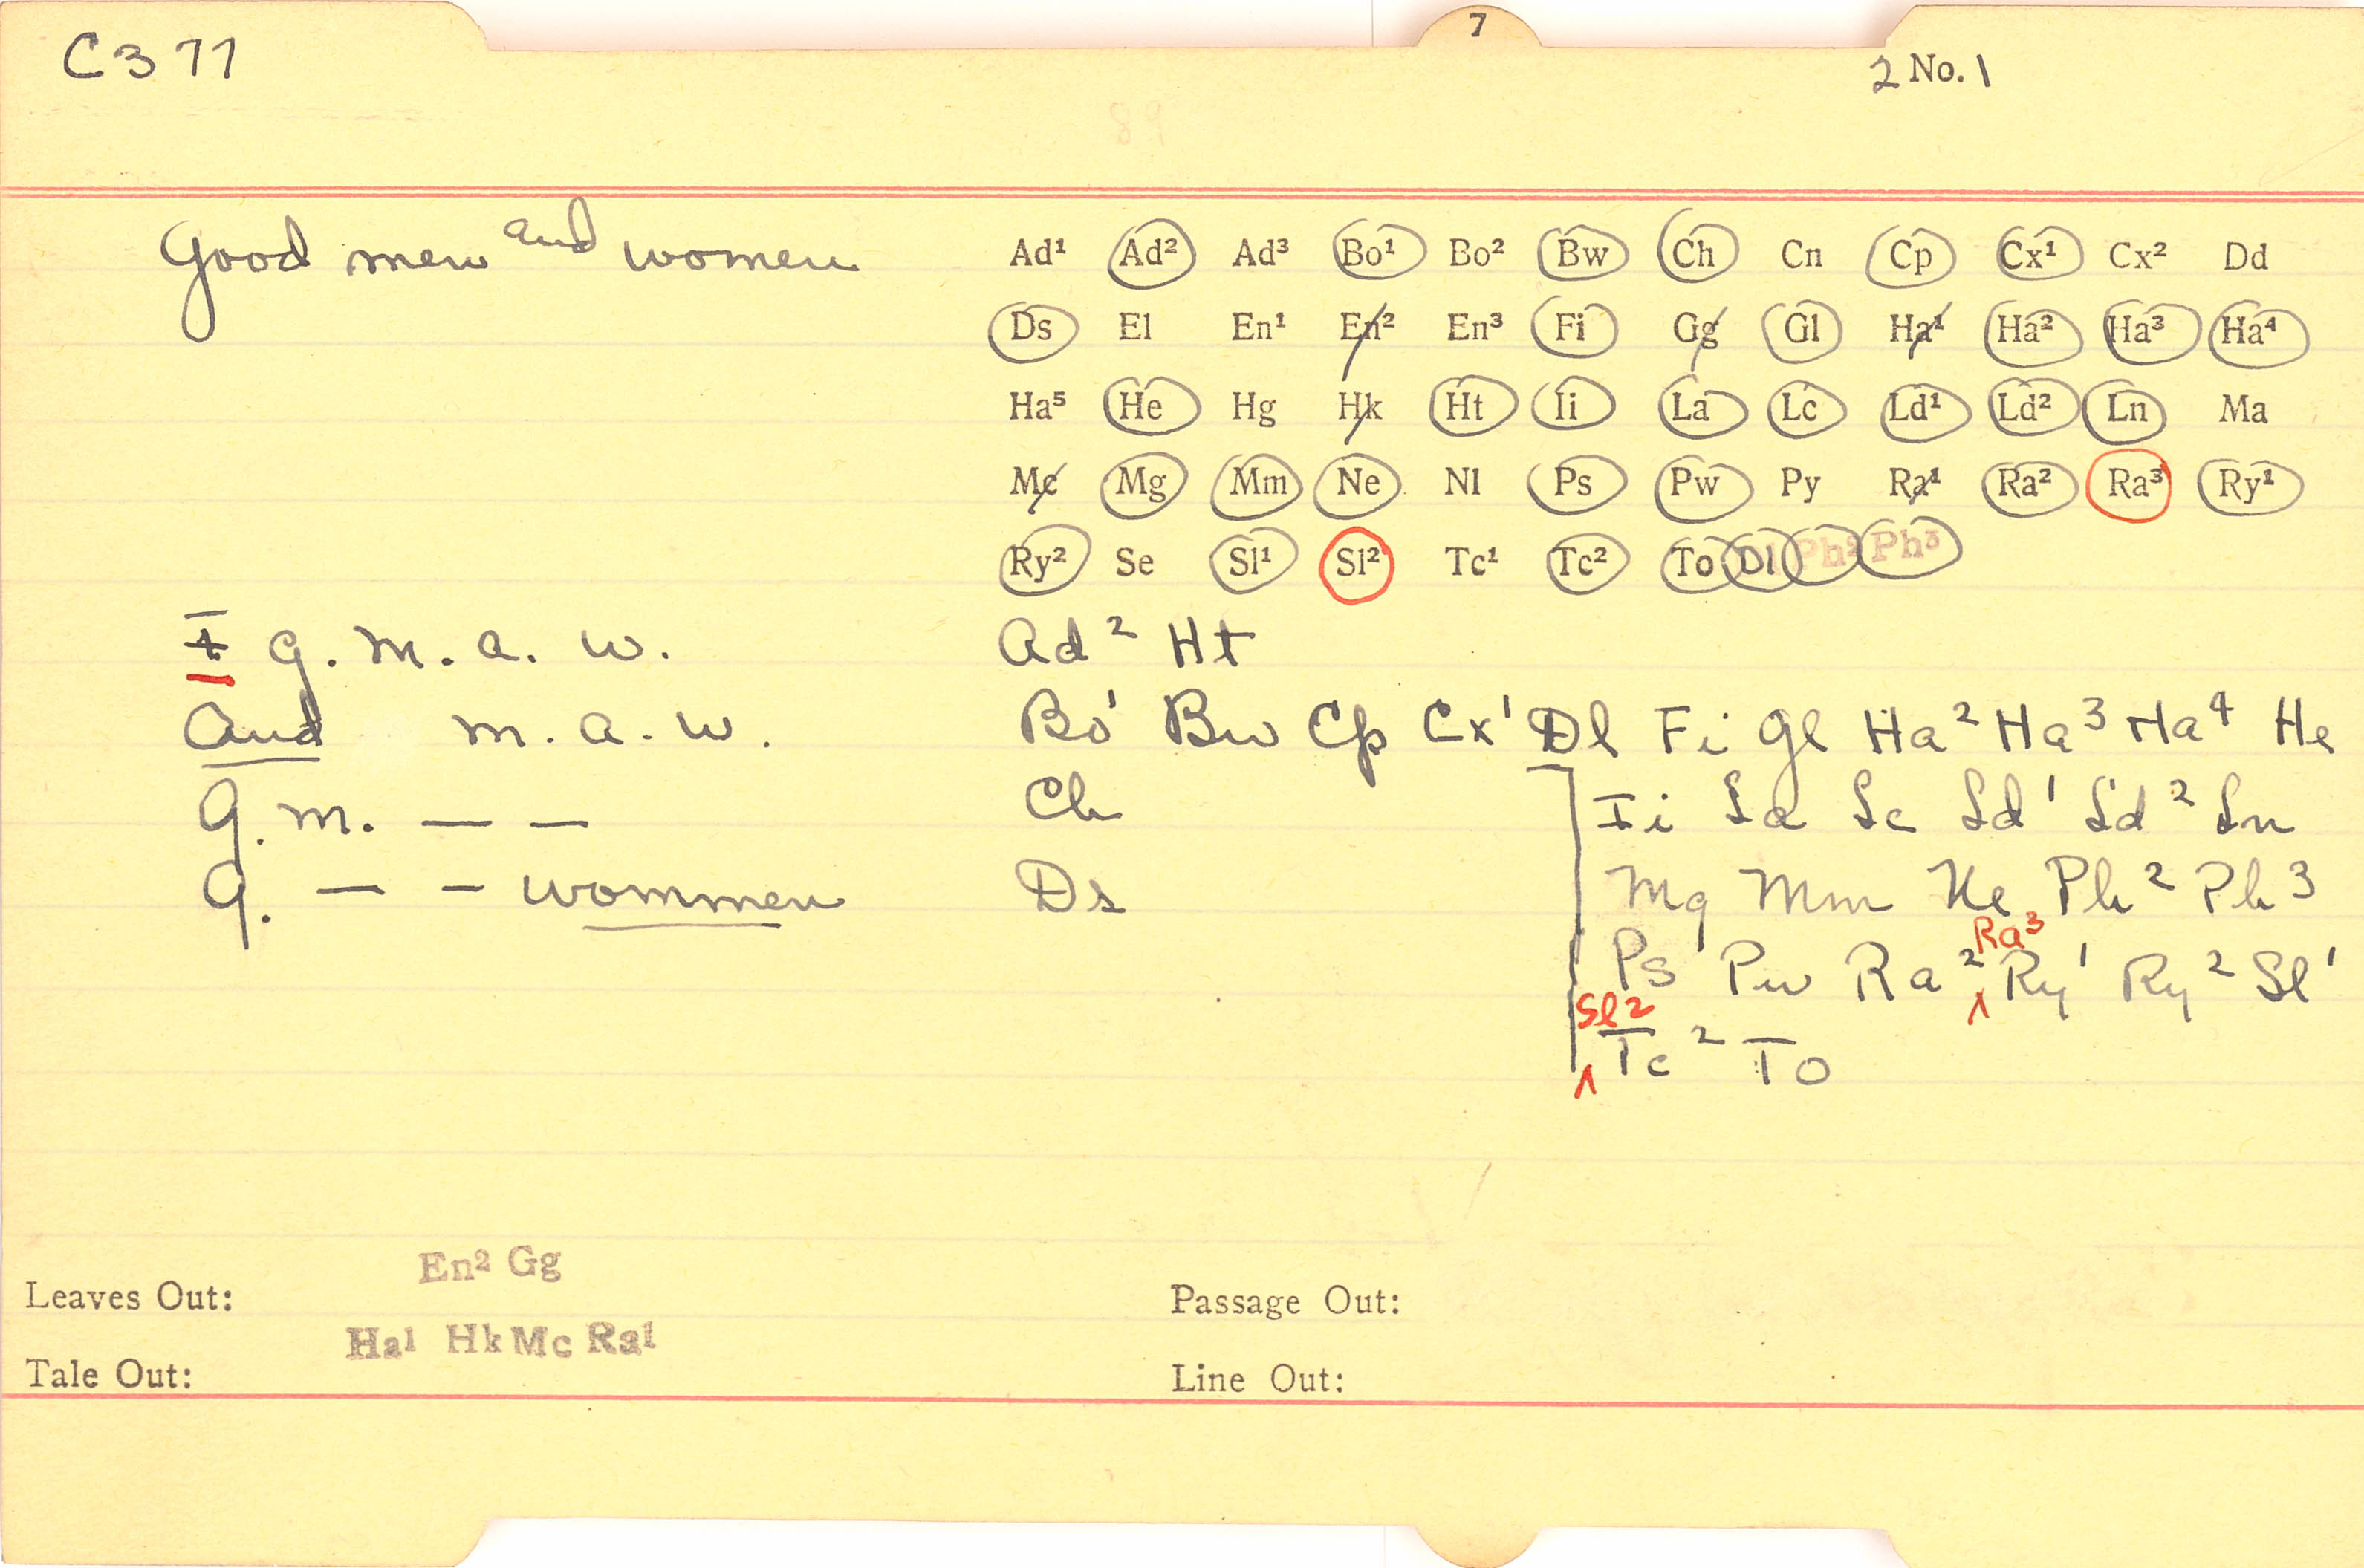 7
C 377
2 No. 1
Good men and women
Ad¹ Ad² Ad³ Bo¹ Bo² Bw Ch Cn Cp Cx¹ Cx² Dd
Ds El En¹ En² En³ Fi Gg Gl Ha¹ Ha² Ha³ Ha⁴
Ha⁵ He Hg Hk Ht Ii La Lc Ld¹ Ld² Ln Ma
Mc Mg Mm Ne Nl Ps Pw Py Ra¹ Ra² Ra³ Ry¹
Ry² Se Sl¹ Sl² Tc¹ Tc² To Dl Ph² Ph³
I g. m. a. w. Ad² Ht
And m. a. w. Bo¹ Bw Cp Cx¹ Dl Fi Gl Ha² Ha³ Ha⁴ He
G. m. — — Ch Ii La Lc Ld¹ Ld² Ln
G. — — wommen Ds Mg Mm Ne Ph² Ph³
Ps Pw Ra² Ra³ Ry¹ Ry² Sl¹
Sl² Tc² To
En² Gg
Leaves Out: Passage Out:
Ha¹ Hk Mc Ra¹
Tale Out: Line Out: